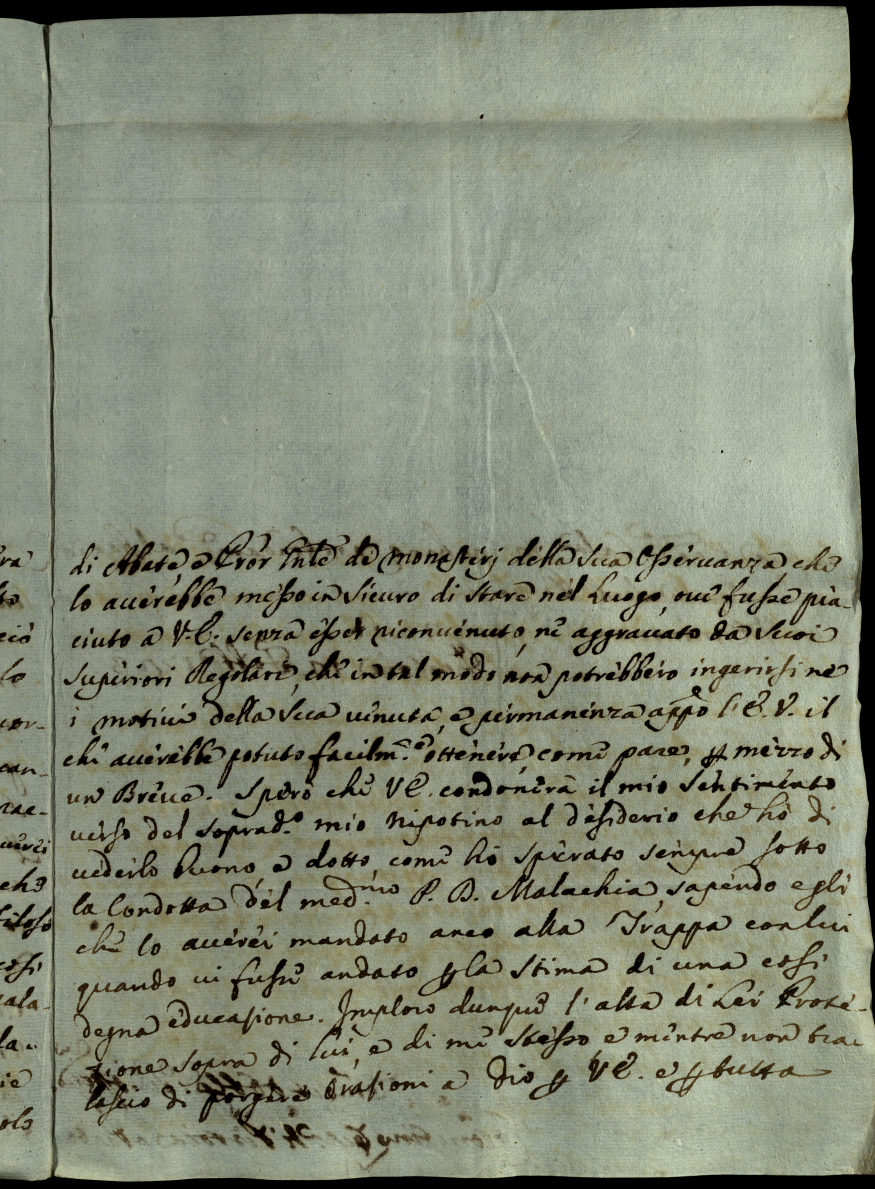 di Abate e Pror Gnle de monasterj della sua Osservanza che
lo averebbe messo in sicuro di stare nel Luogo, ove fusse pia-
ciuto a V. E. senza esser riconvenuto, ne aggravato da suoi
superiori Regolari, che in tal modo non potrebbero ingerirsi ne
i motivi della sua venuta, e permanenza appo l'E. V. il
che averebbe potuto facilm.e ottenere, come pare, p mezzo di
un Breve. Spero che V E. condonerà il mio sentimento
verso del soprad.o mio nipotino al desiderio che hò di
vederlo buono, e dotto, come hò sperato sempre sotto
la Condotta del med.mo P. D. Malachia, sapendo egli
che lo averei mandato anco alla Trappa con lui
quando vi fusse andato p la stima di una così
degna educasione. Imploro dunque l'alta di Lei Prote-
zione sopra di lui, e di me stesso e mentre non tra-
lascio di porgere orasioni a Dio p V E. e p tutta
ra
to
ciò
lo
can-
che
così
ala-
la